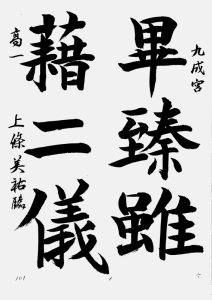 九成宮
畢臻雖
藉二儀
高一
上條美祐臨